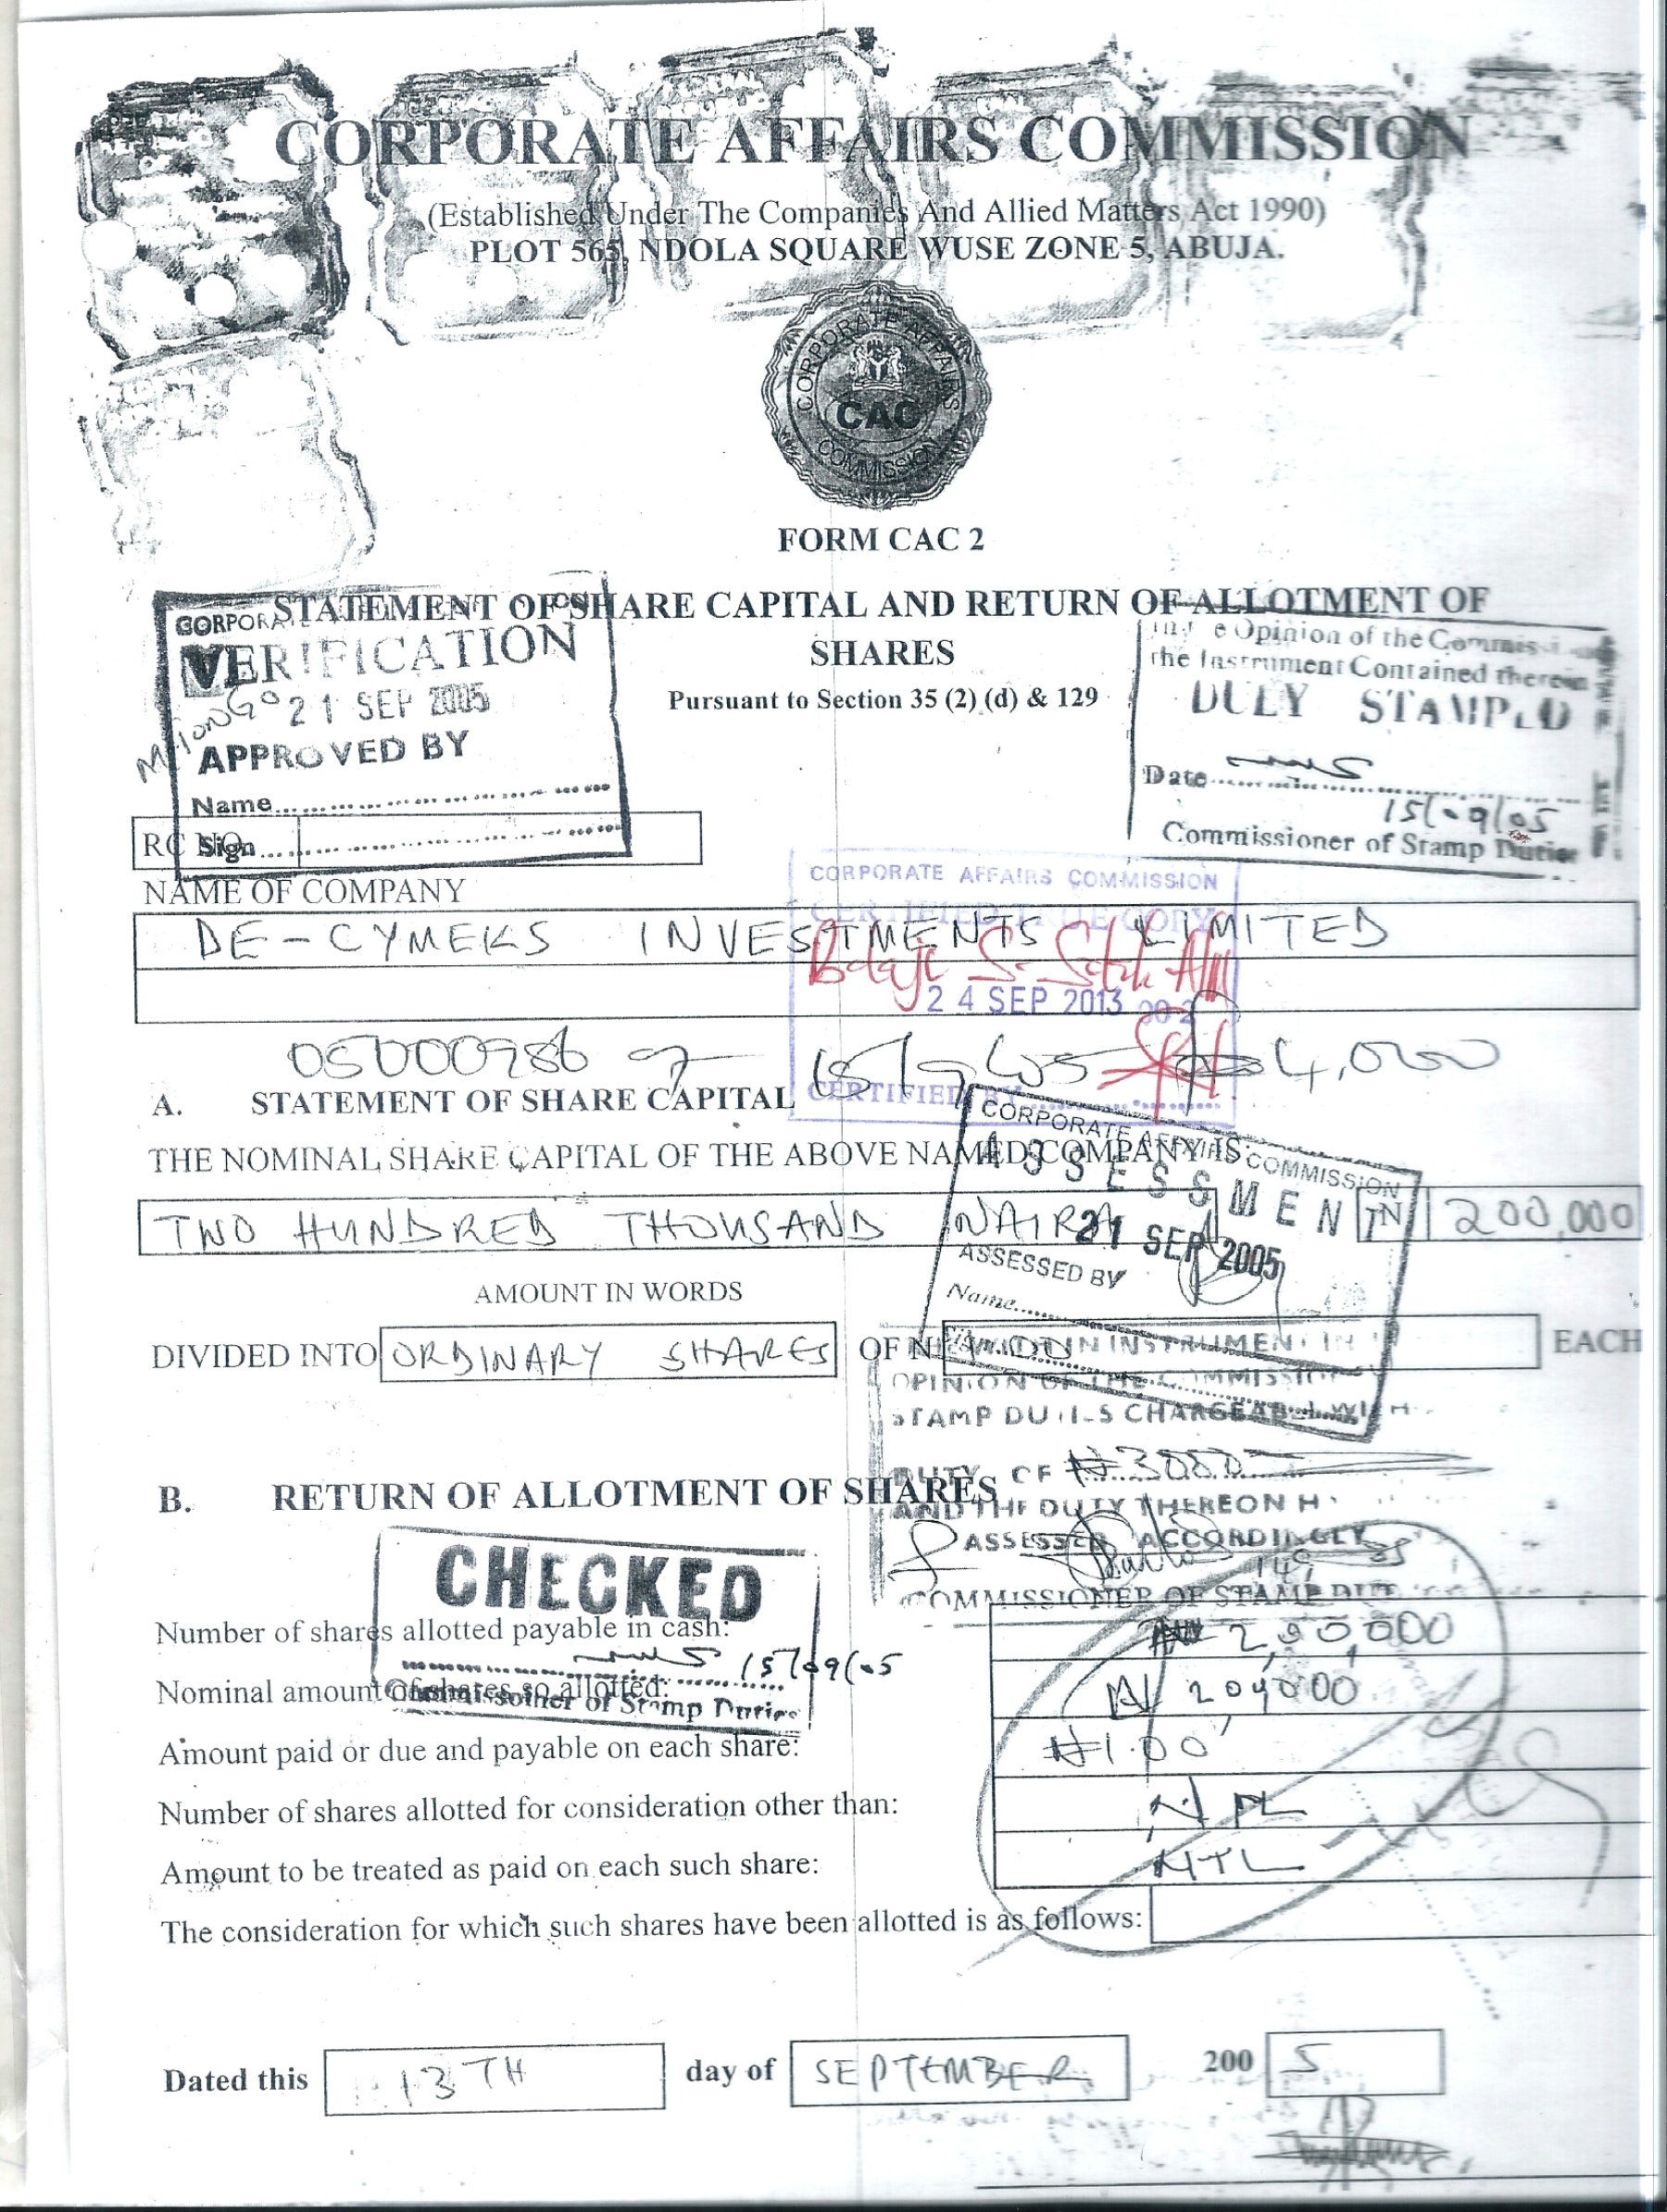 CORPORATE AFFAIRS COMMISSION
(Established Under The Companies And Allied Matters Act 1990)
PLOT 565, NDOLA SQUARE WUSE ZONE 5, ABUJA.
CORPORATE AFFAIRS
CAC
COMMISSION
FORM CAC 2
STATEMENT OF SHARE CAPITAL AND RETURN OF ALLOTMENT OF
SHARES
Pursuant to Section 35 (2) (d) & 129
VERIFICATION
21 SEP 2005
APPROVED BY
Name
Sign
Opinion of the
the Instrument Contained therein
DULY STAMPED
Date
15/09/05
Commissioner of Stamp Duties
RC NO
NAME OF COMPANY
DE-CYMEKS INVESTMENTS LIMITED
CORPORATE AFFAIRS COMMISSION
CERTIFIED TRUE COPY
24 SEP 2013
CERTIFIED BY
05000986 15/9/05 4,000
A. STATEMENT OF SHARE CAPITAL
THE NOMINAL SHARE CAPITAL OF THE ABOVE NAMED COMPANY IS:
CORPORATE AFFAIRS COMMISSION
ASSESSMENT
21 SEP 2005
ASSESSED BY
Name
TWO HUNDRED THOUSAND NAIRA IN 200,000
AMOUNT IN WORDS
DIVIDED INTO ORDINARY SHARES OF N EACH
INSTRUMENT IN
OPINION OF THE COMMISSIONER
STAMP DUTIES CHARGEABLE WITH
DUTY OF ₦3000
AND THE DUTY THEREON
ASSESSED ACCORDINGLY
COMMISSIONER OF STAMP
B. RETURN OF ALLOTMENT OF SHARES
CHECKED
15/09/05
Commissioner of Stamp Duties
Number of shares allotted payable in cash:
Nominal amount of shares so allotted:
Amount paid or due and payable on each share: ₦1.00
Number of shares allotted for consideration other than: NIL
Amount to be treated as paid on each such share: NIL
The consideration for which such shares have been allotted is as follows:
Dated this 13TH day of SEPTEMBER 200 5